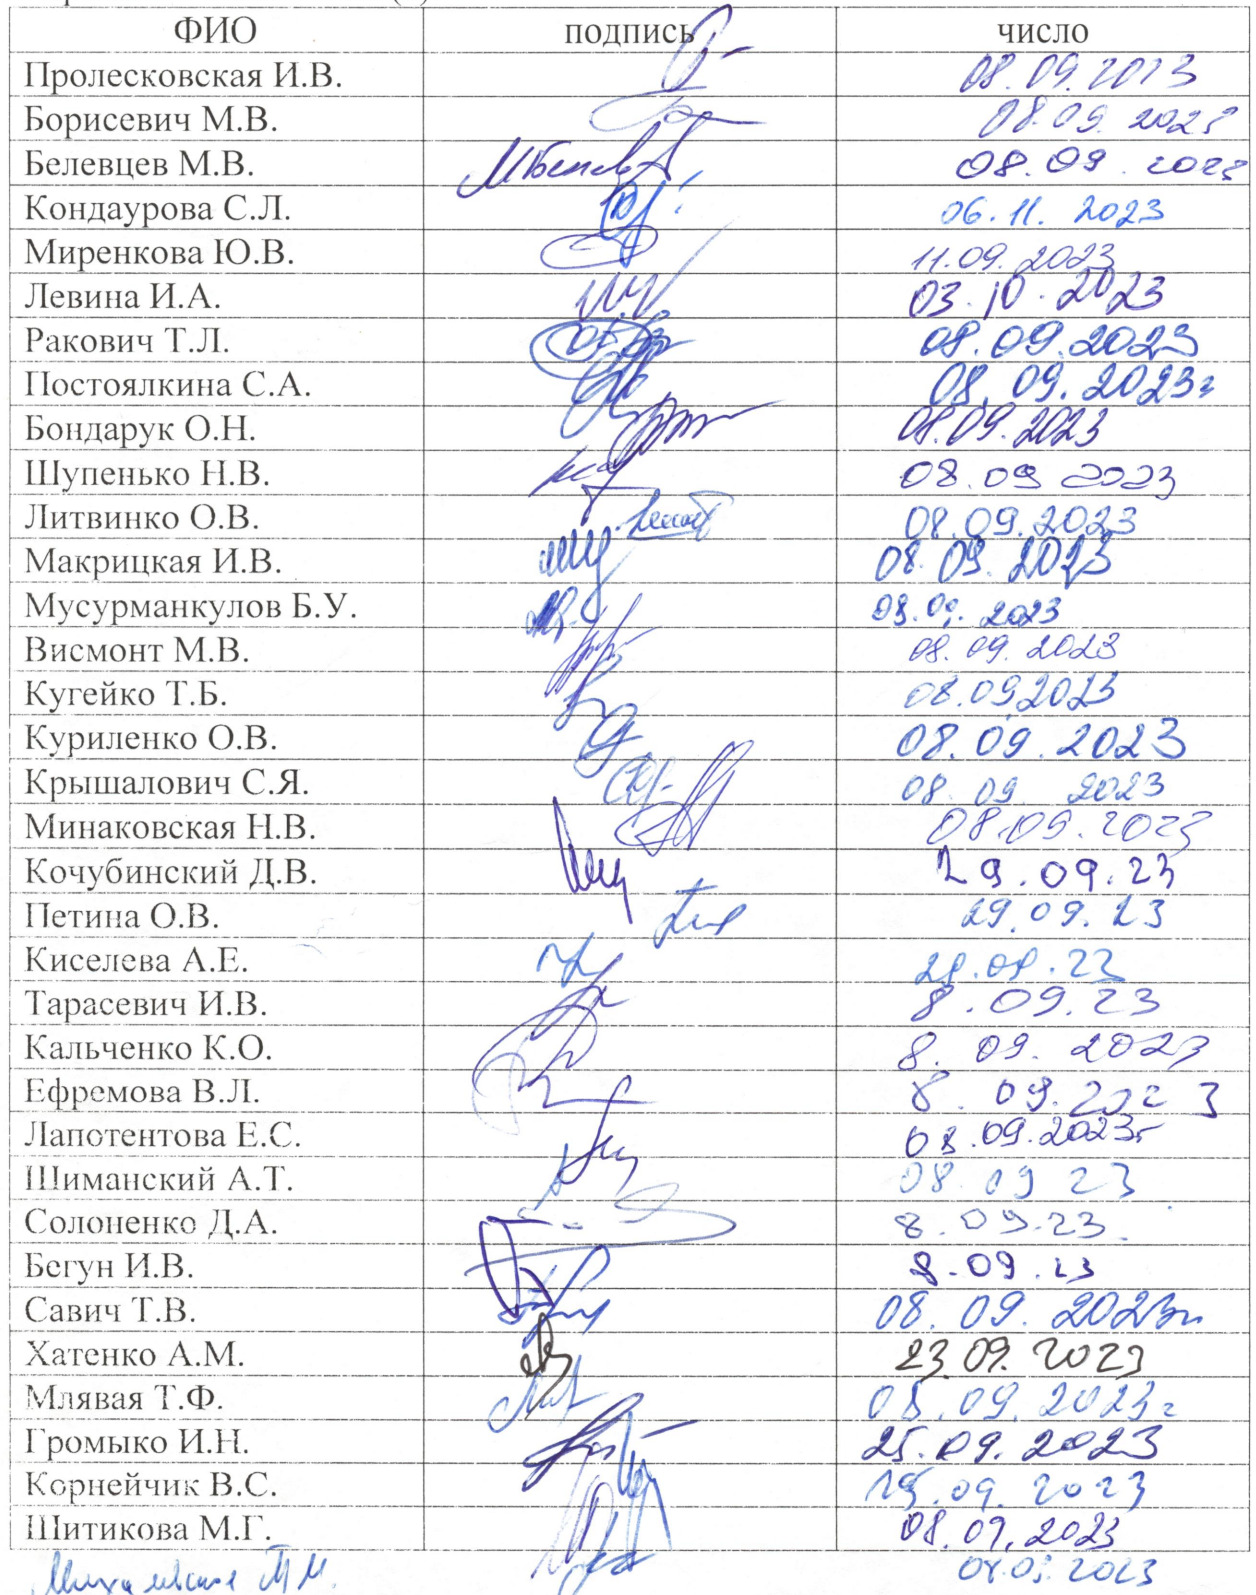 ФИО подпись число
Пролесковская И.В. 08.09.2023
Борисевич М.В. 08.09.2023
Белевцев М.В. 08.09.2023
Кондаурова С.Л. 06.11.2023
Миренкова Ю.В. 11.09.2023
Левина И.А. 03.10.2023
Ракович Т.Л. 08.09.2023
Постоялкина С.А. 08.09.2023г
Бондарук О.Н. 08.09.2023
Шупенько Н.В. 08.09 2023
Литвинко О.В. 08.09.2023
Макрицкая И.В. 08.09.2023
Мусурманкулов Б.У. 2023
Висмонт М.В. 08.09.2023
Кугейко Т.Б. 08.09.2023
Куриленко О.В. 08.09.2023
Крышалович С.Я. 08.09 2023
Минаковская Н.В. 08.09.2023
Кочубинский Д.В. 29.09.23
Петина О.В. 29.09.23
Киселева А.Е.
Тарасевич И.В. 8.09.23
Кальченко К.О. 8.09.2023
Ефремова В.Л. 8.09.2023
Лапотентова Е.С. 08.09.2023г
Шиманский А.Т. 08.09 23
Солоненко Д.А. 8.09.23
Бегун И.В. 8.09.23
Савич Т.В. 08.09.2023г
Хатенко А.М. 23.09.2023
Млявая Т.Ф. 08.09.2023г
Громыко И.Н. 25.09.2023
Корнейчик В.С. 09.2023
Шитикова М.Г. 08.09.2023